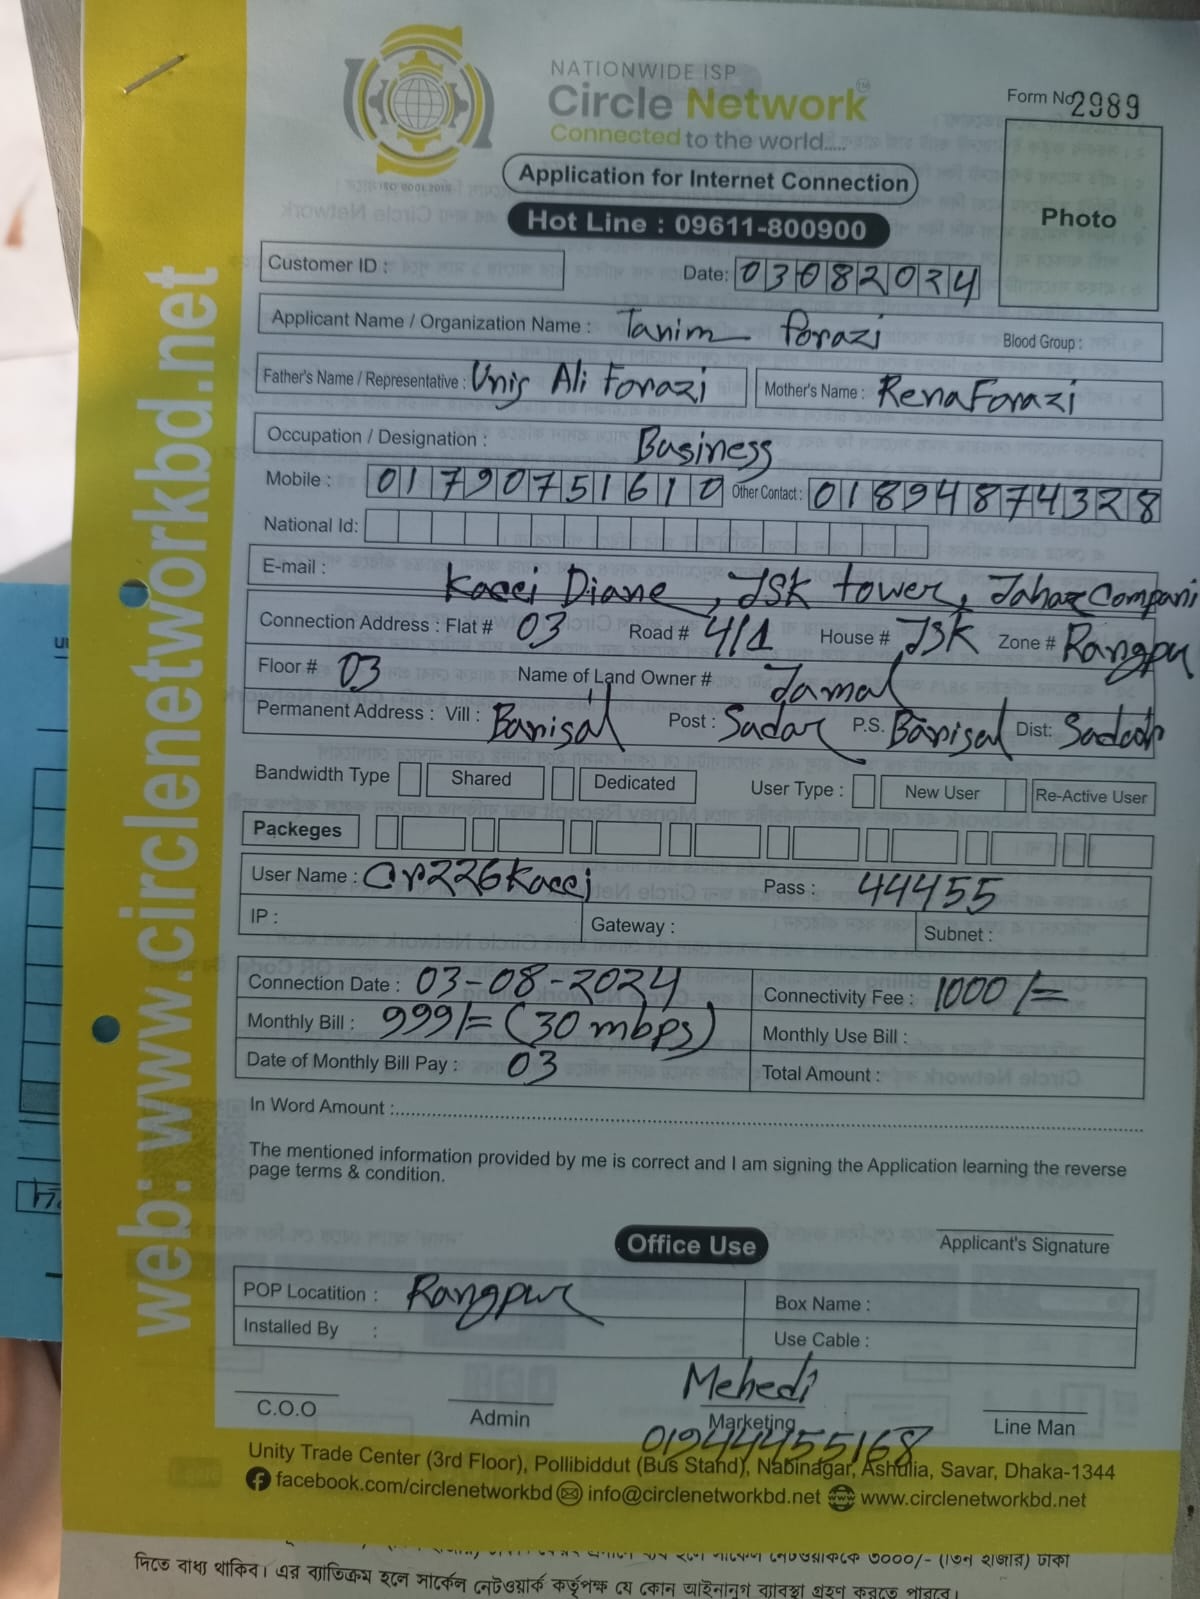 NATIONWIDE ISP
Circle Network™
Connected to the world.....
ISO 9001:2015
Form No 2989
Photo
Application for Internet Connection
Hot Line : 09611-800900
Customer ID :
Date: 03082024
Applicant Name / Organization Name : Tanim forazi Blood Group :
Father's Name / Representative : Unis Ali Forazi Mother's Name : Rena Forazi
Occupation / Designation : Business
Mobile : 01790751610 Other Contact : 01894874328
National Id:
E-mail :
Kacci Diane, JSK tower, Jahaz Compani
Connection Address : Flat # 03 Road # 4/1 House # JSK Zone # Rangpur
Floor # 03 Name of Land Owner # Jamal
Permanent Address : Vill : Barisal Post : Sadar P.S. Barisal Dist: Sadar
Bandwidth Type Shared Dedicated User Type : New User Re-Active User
Packeges
User Name : Cr226Kacci Pass : 44455
IP : Gateway : Subnet :
Connection Date : 03-08-2024 Connectivity Fee : 1000/=
Monthly Bill : 999/= (30 mbps) Monthly Use Bill :
Date of Monthly Bill Pay : 03 Total Amount :
In Word Amount :
The mentioned information provided by me is correct and I am signing the Application learning the reverse
page terms & condition.
Office Use
Applicant's Signature
POP Locatition : Rangpur Box Name :
Installed By : Use Cable :
Mehedi
C.O.O Admin Marketing Line Man
01944455168
Unity Trade Center (3rd Floor), Pollibiddut (Bus Stand), Nabinagar, Ashulia, Savar, Dhaka-1344
facebook.com/circlenetworkbd info@circlenetworkbd.net www.circlenetworkbd.net
web: www.circlenetworkbd.net
৩০০০/- (তিন হাজার) টাকা
দিতে বাধ্য থাকিব। এর ব্যতিক্রম হলে সার্কেল নেটওয়ার্ক কর্তৃপক্ষ যে কোন আইনানুগ ব্যাবস্থা গ্রহণ করতে পারবে।